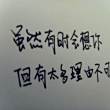 虽然有时会想你
但有太多理由不可